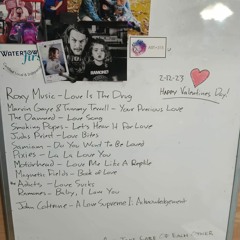 WATERTOWN
RAMONES
2-12-23
Happy Valentines Day!
Roxy Music - Love Is The Drug
Marvin Gaye & Tammy Terrell - Your Precious Love
The Damned - Love Song
Smoking Popes - Let's Hear It For Love
Judas Priest - Love Bites
Samiam - Do You Want To Be Loved
Pixies - La La Love You
Motörhead - Love Me Like A Reptile
Magnetic Fields - Book of Love
The Adicts - Love Sucks
Ramones - Baby, I Love You
John Coltrane - A Love Supreme I: Acknowledgement
Take Care Of Each Other